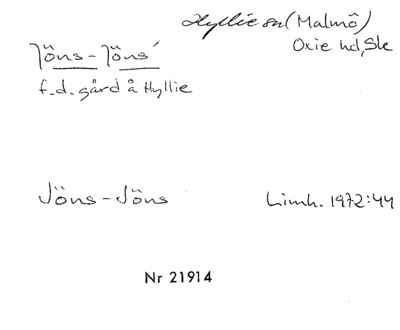 Hyllie sn (Malmö)
Oxie hd, Sk
Jöns-Jöns'
f.d. gård å Hyllie
Jöns-Jöns
Limh. 1972:44
Nr 21914